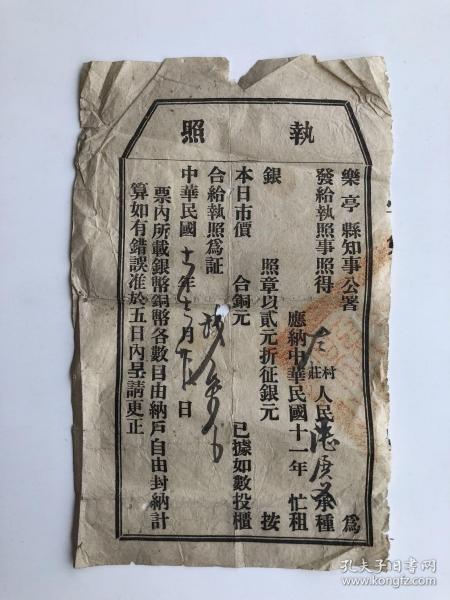 執照
樂亭縣知事公署為
發給執照事照得 村莊人民 承種
應納中華民國十一年 忙租
銀 照章以貳元折征銀元 按
本日市價 合銅元 已據如數投櫃
合給執照為証
中華民國十一年 月 日
票內所載銀幣銅幣各數目由納戶自由封納計
算如有錯誤准於五日內呈請更正
孔夫子旧书网
www.kongfz.com